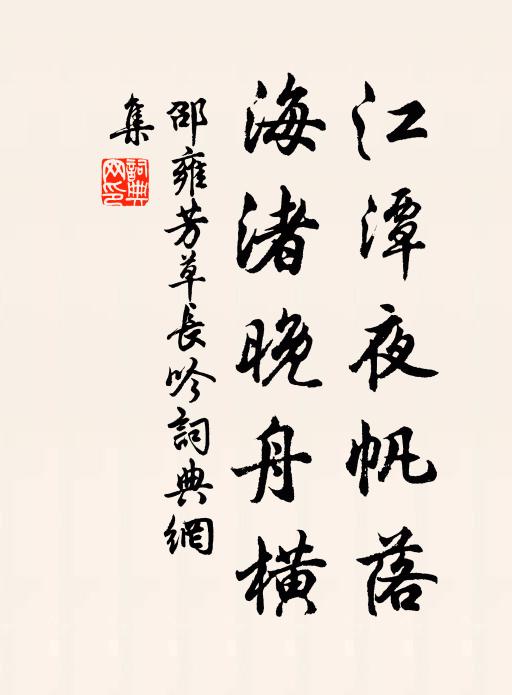 江潭夜帆落
海渚晚舟橫
邵雍芳草長吟詞典網
集
詞典網印